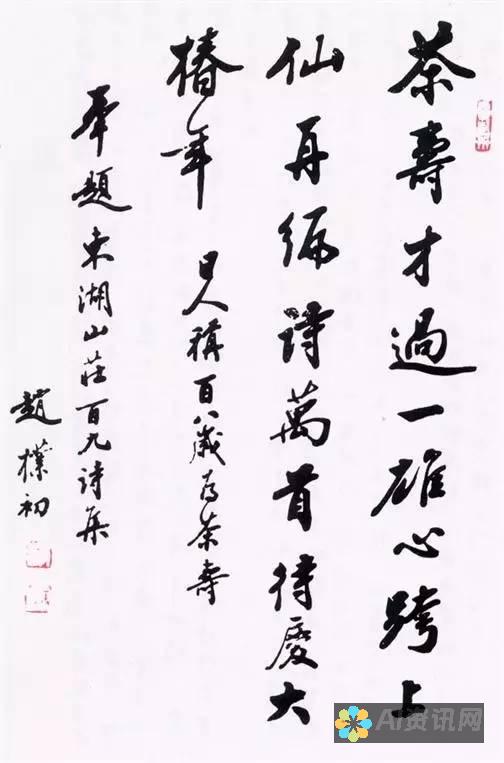 茶壽才過一雄心跨上
仙再編詩萬首待慶大
椿年 日人稱百八歲為茶壽
奉題東湖山莊百九詩集
趙樸初
AI资讯网